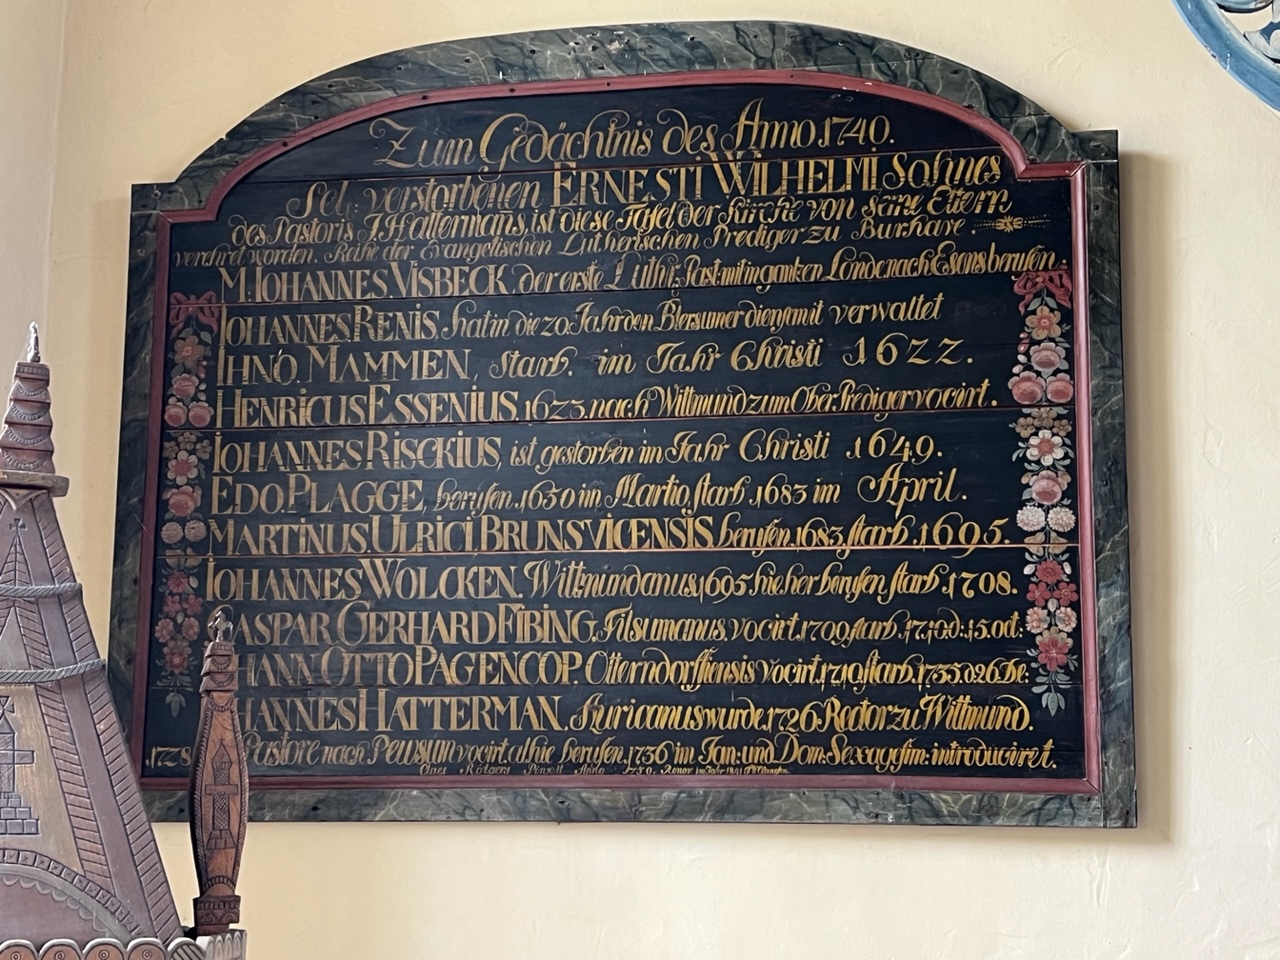 Zum Gedächtnis des Anno.1740.
Sel: verstorbenen ERNESTI WILHELMI Sohnes
des Pastoris J. Hattermans, ist diese Tafel der Kirche von seine Eltern
verehret worden. Reihe der Evangelischen Lutherischen Prediger zu Burhave.
M. IOHANNES. VISBECK. der erste Luthr: Past: mit in ganken Lande nach Esens berufen.
IOHANNES. RENIS. hat in die 20. Jahr den Blersumer dienst mit verwaltet
IHNO. MAMMEN, starb. im Jahr Christi 1622.
HENRICUS ESSENIUS. 1623. nach Wittmund zum Ober. Prediger vocirt.
IOHANNES RISCKIUS, ist gestorben im Jahr Christi 1649.
EDO. PLAGGE, berufen. 1650 im Martio, starb. 1683 im April.
MARTINUS. ULRICI. BRUNSVICENSIS. berufen. 1683. starb. 1695.
IOHANNES WOLCKEN. Wittmundanus. 1695 hieher berufen, starb. 1708.
ASPAR GERHARD FIBING. Filsumanus. vocirt. 1709. starb. 1710 d: 15. oct:
HANN OTTO PAGENCOP. Otterndorffiensis vocirt. 1710. starb. 1735. d 26 De:
HANNES HATTERMAN. Auricanus wurde. 1726 Rector zu Wittmund.
1728 Pastore nach Pewsum vocirt. alhie berufen. 1736 im Jan: und Dom: Sexagesim: introduciret.